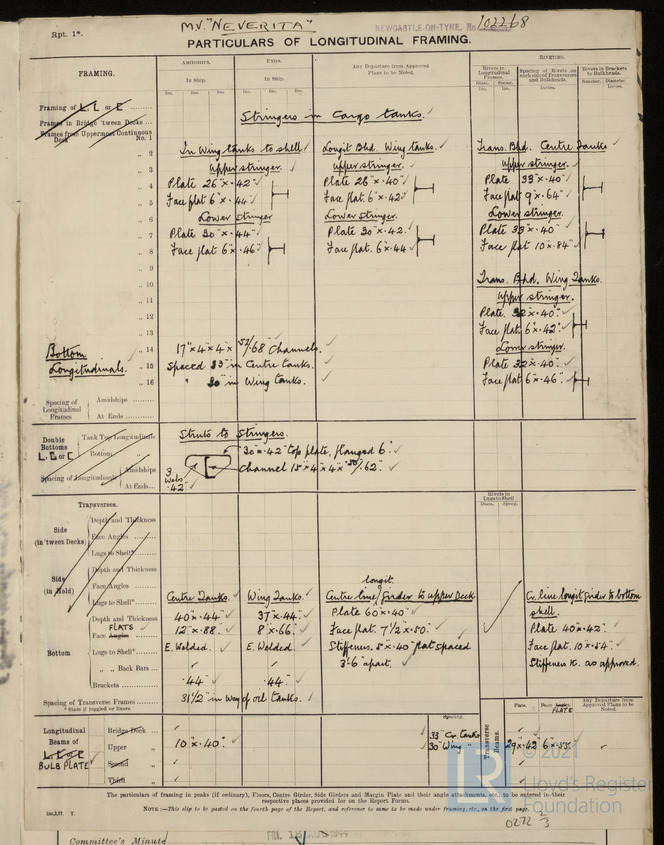 Rpt. 1*.
M.V. "NEVERITA"
NEWCASTLE-ON-TYNE, No. 102268
PARTICULARS OF LONGITUDINAL FRAMING.
FRAMING.
AMIDSHIPS.
ENDS.
Any Departure from Approved Plans to be Noted.
RIVETING.
In Ship.
In Ship.
Rivets in Longitudinal Frames.
Spacing of Rivets on each side of Transverses and Bulkheads.
Rivets in Brackets to Bulkheads.
Number.
Diameter.
Framing of L, L or C
Frames in Bridge 'tween Decks
Frames from Uppermost Continuous Deck No. 1
Stringers in Cargo tanks.
In Wing tanks to shell
Longit Bhd. Wing tanks.
Trans. Bhd. Centre Tanks
upper stringer.
upper stringer.
upper stringer.
Plate 26" x .42"
Plate 28" x .40"
Plate 33" x .40"
Face flat 6" x .44"
Face flat. 6" x .42"
Face flat 9" x .64"
Lower stringer
Lower stringer.
Lower stringer.
Plate 30" x .44"
Plate 30" x .42.
Plate 33" x .40"
Face flat. 6" x .46"
Face flat. 6" x .44
Face flat 10" x .84"
Trans. Bhd. Wing Tanks.
upper stringer.
Plate, 32" x .40"
Face flat. 6" x .42"
Lower stringer.
Plate 32" x .40"
Face flat 6" x .46"
„ 2
„ 3
„ 4
„ 5
„ 6
„ 7
„ 8
„ 9
„ 10
„ 11
„ 12
„ 13
„ 14
„ 15
„ 16
Bottom Longitudinals.
17" x 4 x 4 x .68" Channels.
Spaced 33" in Centre tanks.
" 30" in Wing tanks.
Spacing of Longitudinal Frames
Amidships
At Ends
Double Bottoms L, L or C
Tank Top Longitudinals
Bottom „
Spacing of Longitudinals
Amidships
At Ends
Struts to Stringers.
30" x .42" top plate, flanged 6"
Channel 15" x 4 x 4 x .62".
3 Webs .42"
Rivets in Lugs to Shell
Diam.
Spacing.
Transverses.
Side (in 'tween Decks)
Depth and Thickness
Face Angles
Lugs to Shell*
Side (in Hold)
Depth and Thickness
Face Angles
Lugs to Shell*
Centre Tanks.
Wing Tanks.
Centre line longit. Girder to upper Deck
Cr. line longit girder to bottom shell.
Bottom
Depth and Thickness
40" x .44"
37" x .44"
Plate 60" x .40"
Plate 40" x .42"
FLATS
Face Angles
12" x .88"
8" x .66"
Face flat. 7 1/2 x .80"
Face flat. 10" x .84"
Lugs to Shell*
E. Welded.
E. Welded.
Stiffeners. 8" x .40" flat spaced 3'-6" apart.
Stiffeners &c. as approved.
„ „ Back Bars
Brackets
.44"
.44"
Spacing of Transverse Frames
31 1/2" in way of oil tanks.
* State if joggled or liners
Spacing.
Transverse Beams.
Plate.
Face Angles
FLATE
Any Departure from Approved Plans to be Noted.
Longitudinal Beams of L, L or C
BULB PLATE
Bridge Deck
Upper „
Second „
Third „
10" x .40"
33" Cr. tanks
30" Wing "
29 x .42
6" x .55"
The particulars of framing in peaks (if ordinary), Floors, Centre Girder, Side Girders and Margin Plate and their angle attachments, etc., to be entered in their
respective places provided for on the Report Forms.
NOTE:—This slip to be pasted on the fourth page of the Report, and reference to same to be made under framing, etc., on the first page.
© 2021
Lloyd's Register
Foundation
0272 2/3
Committee's Minute